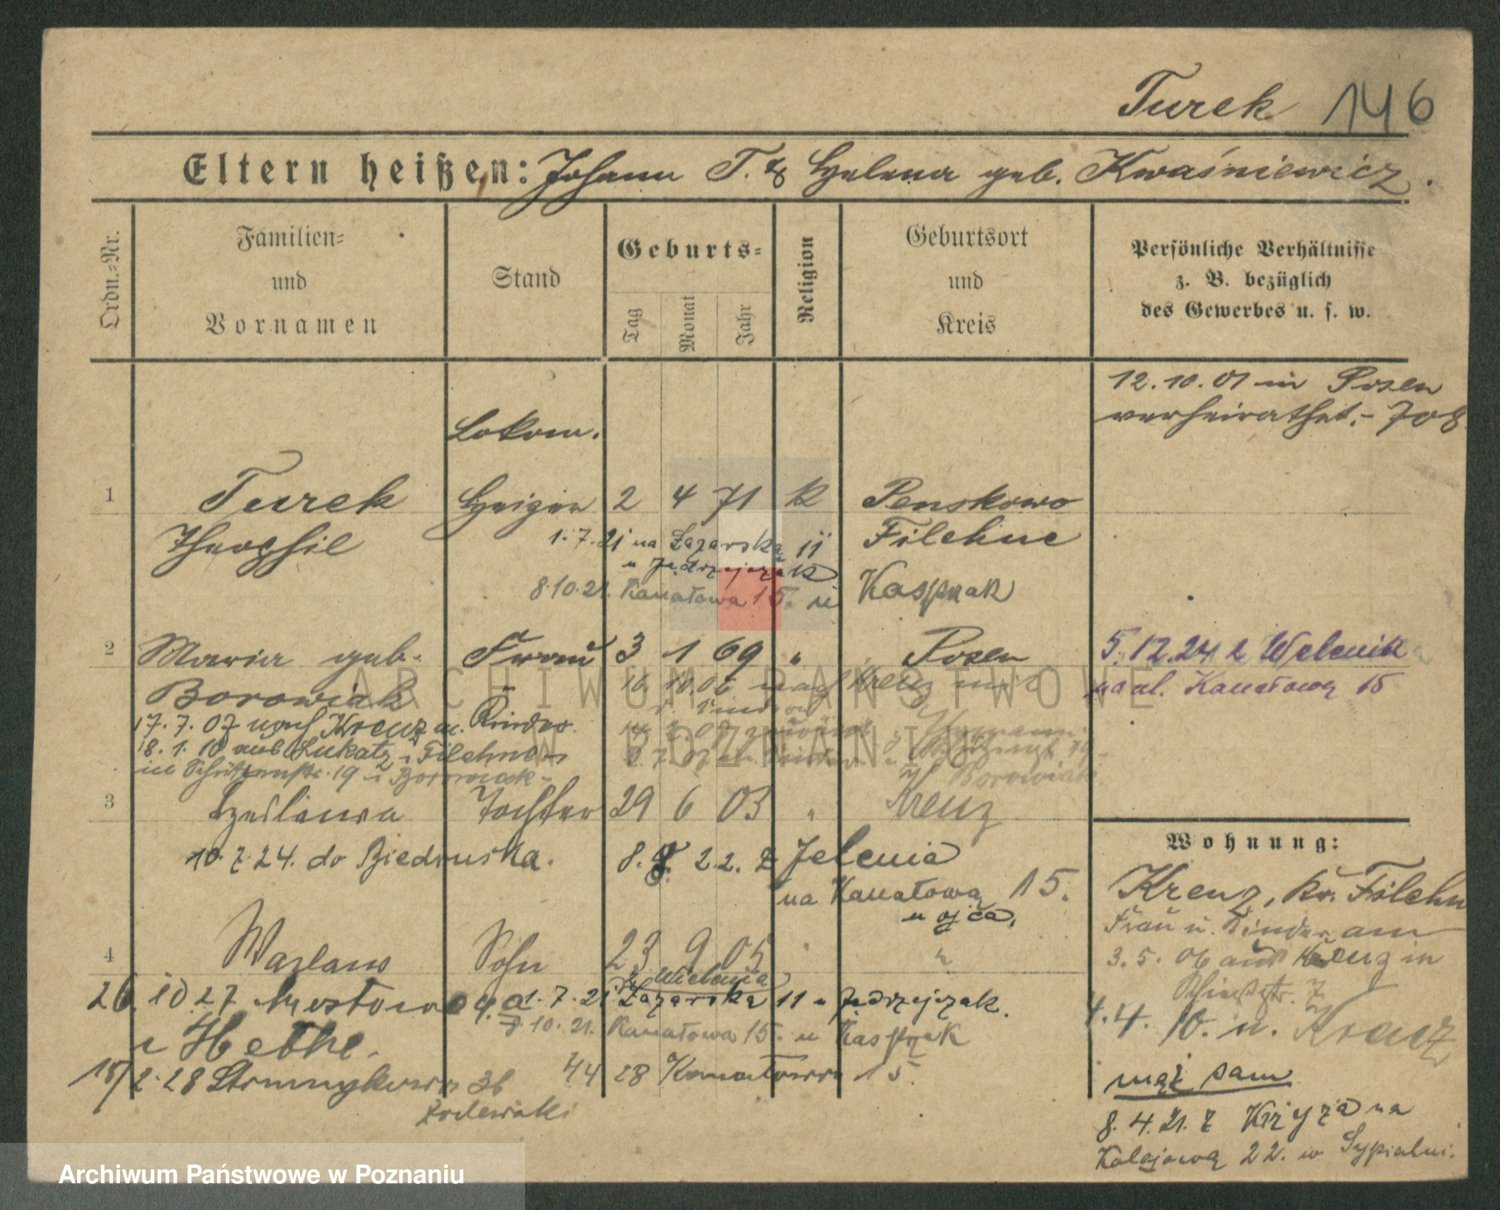 Turek 146
Eltern heißen: Johann T. & Helena geb. Kwaśniewicz.
Ordn.=Nr.
Familien=
und
Vornamen
Stand
Geburts=
Tag
Monat
Jahr
Religion
Geburtsort
und
Kreis
Persönliche Verhältnisse
z. B. bezüglich
des Gewerbes u. s. w.
12.10.01 in Posen
verheirathet. - 708
Lokom.
1 Turek Heizer 2 4 71 K Penskowo
Theophil
Filehne
1.7.21 na Łazarska 11
u Jędrzejczak
8.10.21. Kanałowa 15. u Kasprzak
2 Maria geb. Frau 3 1 69 " Posen
Borowiak
5.12.24 z Welenia
na ul. Kanałową 15
16.10.06 nach Kreuz mit
17.7.07 nach Kreuz u. Kinder
18.1.10 aus Lukatz, Filehne
in Schützenstr. 19 i Borowiak
Borowiak
3 Tochter 29 6 03 " Kreuz
10.7.24. do Biedruska.
8. 22. z Jelenia
na Kanałową 15.
u ojca.
Wohnung:
Kreuz, Kr. Filehn
Frau u. Kinder am
3.5.06 aus Kreuz in
4.4.10. u. Kreuz
mąż sam
8.4.21. z Krzyża na
Kolejową 22. w Sypialni.
4 Wazlaw Sohn 23 9 05 " "
26.10.27 Mostowa 4a
1.7.21 Łazarska 11 u Jędrzejczak.
7.10.21. Kanałowa 15. u Kasprzak
u Hethe.
18/2.28 36
4.4 28 Kanałowa 15.
ARCHIWUM PAŃSTWOWE
W POZNANIU
Archiwum Państwowe w Poznaniu